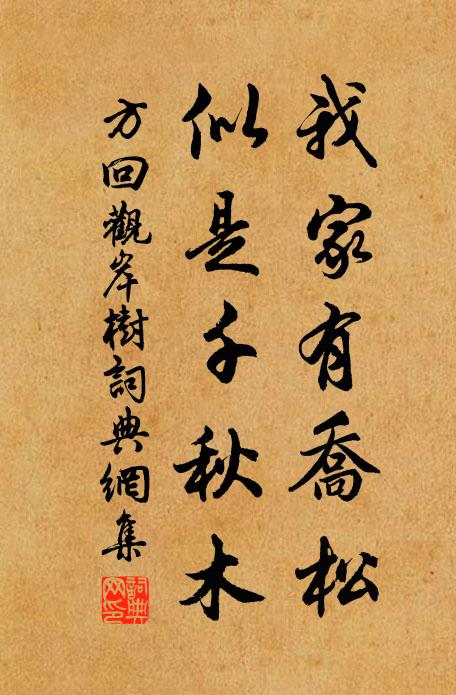 我家有喬松
似是千秋木
方回觀岸樹詞典網集
詞典網印